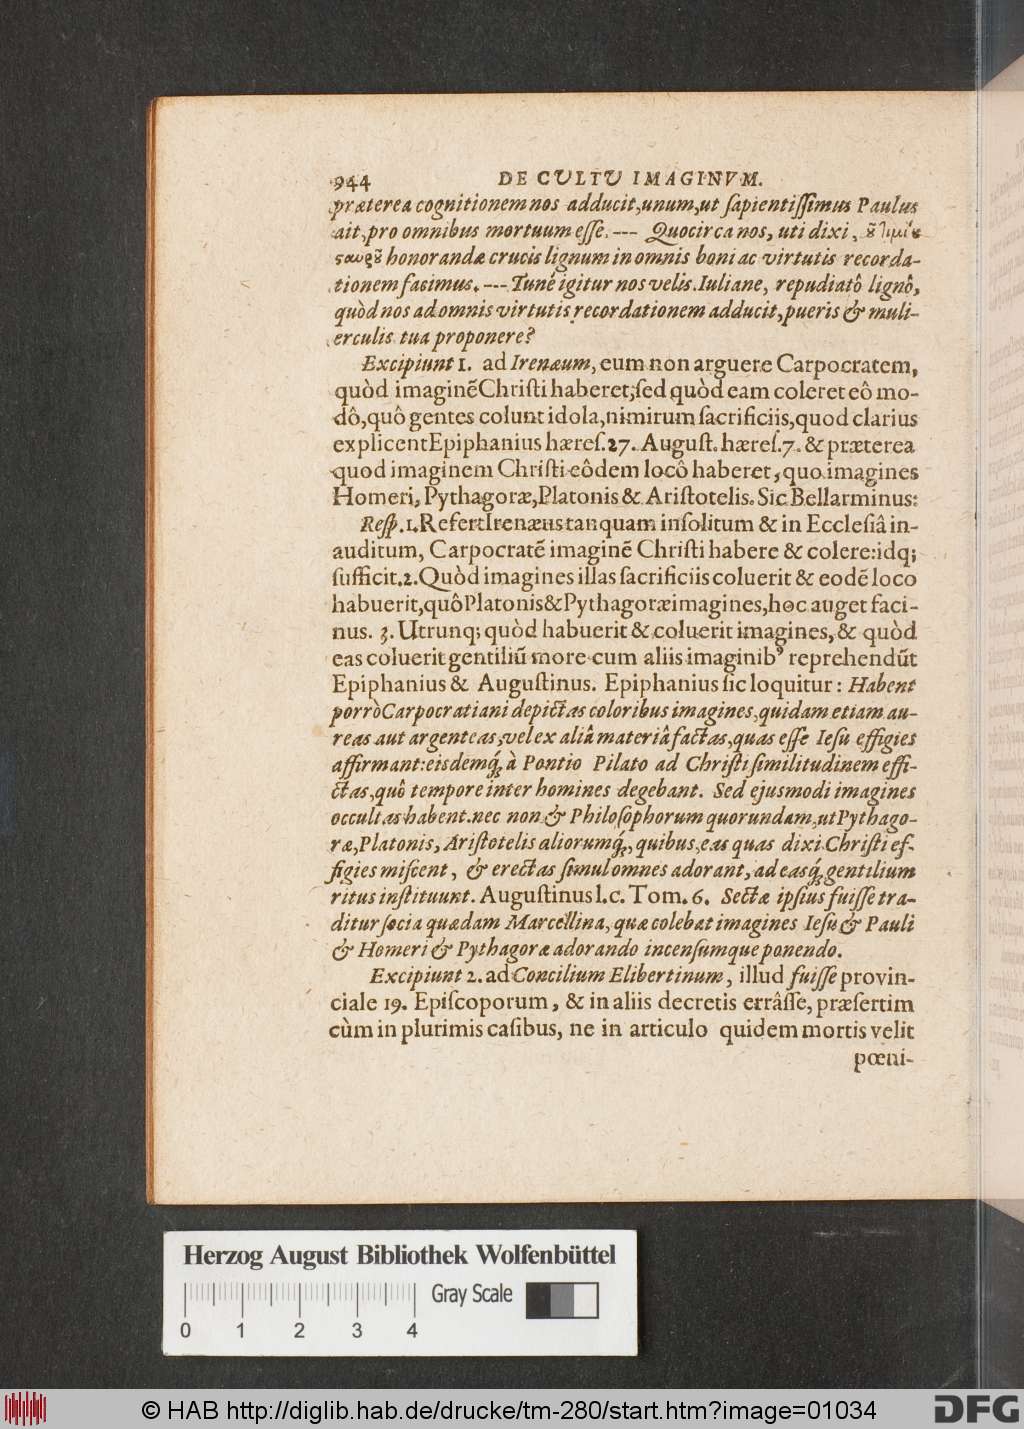 944 DE CULTU IMAGINVM.
præterea cognitionem nos adducit, unum, ut ſapientiſſimus Paulus
ait, pro omnibus mortuum eſſe. --- Quocirca nos, uti dixi,
honorandæ crucis lignum in omnis boni ac virtutis recorda-
tionem facimus. --- Tunè igitur nos velis Iuliane, repudiatô lignô,
quòd nos ad omnis virtutis recordationem adducit, pueris & muli-
erculis tua proponere?
Excipiunt 1. ad Irenæum, eum non arguere Carpocratem,
quòd imaginẽ Chriſti haberet; ſed quòd eam coleret eô mo-
dô, quô gentes colunt idola, nimirum ſacrificiis, quod clarius
explicent Epiphanius hæreſ. 27. Auguſt. hæreſ. 7. & præterea
quod imaginem Chriſti eôdem locô haberet, quo imagines
Homeri, Pythagoræ, Platonis & Ariſtotelis. Sic Bellarminus:
Reſp. 1. Refert Irenæus tanquam inſolitum & in Eccleſiâ in-
auditum, Carpocratẽ imaginẽ Chriſti habere & colere: idq;
ſufficit. 2. Quòd imagines illas ſacrificiis coluerit & eodẽ loco
habuerit, quô Platonis & Pythagoræ imagines, hoc auget faci-
nus. 3. Utrunq; quòd habuerit & coluerit imagines, & quòd
eas coluerit gentiliũ more cum aliis imaginibꝰ reprehendũt
Epiphanius & Auguſtinus. Epiphanius ſic loquitur: Habent
porrò Carpocratiani depictas coloribus imagines, quidam etiam au-
reas aut argenteas, vel ex aliâ materiâ factas, quas eſſe Ieſu effigies
affirmant: eisdemq́; à Pontio Pilato ad Chriſti ſimilitudinem effi-
ctas, quô tempore inter homines degebant. Sed ejusmodi imagines
occultas habent. nec non & Philoſophorum quorundam, ut Pythago-
ræ, Platonis, Ariſtotelis aliorumq́;, quibus, eas quas dixi Chriſti ef-
figies miſcent, & erectas ſimul omnes adorant, ad easq́; gentilium
ritus inſtituunt. Auguſtinus l. c. Tom. 6. Sectæ ipſius fuiſſe tra-
ditur ſocia quædam Marcellina, quæ colebat imagines Ieſu & Pauli
& Homeri & Pythagoræ adorando incenſumque ponendo.
Excipiunt 2. ad Concilium Elibertinum, illud fuiſſe provin-
ciale 19. Epiſcoporum, & in aliis decretis errâſſe, præſertim
cùm in plurimis caſibus, ne in articulo quidem mortis velit
pœni-
Herzog August Bibliothek Wolfenbüttel
Gray Scale
0 1 2 3 4
© HAB http://diglib.hab.de/drucke/tm-280/start.htm?image=01034
DFG